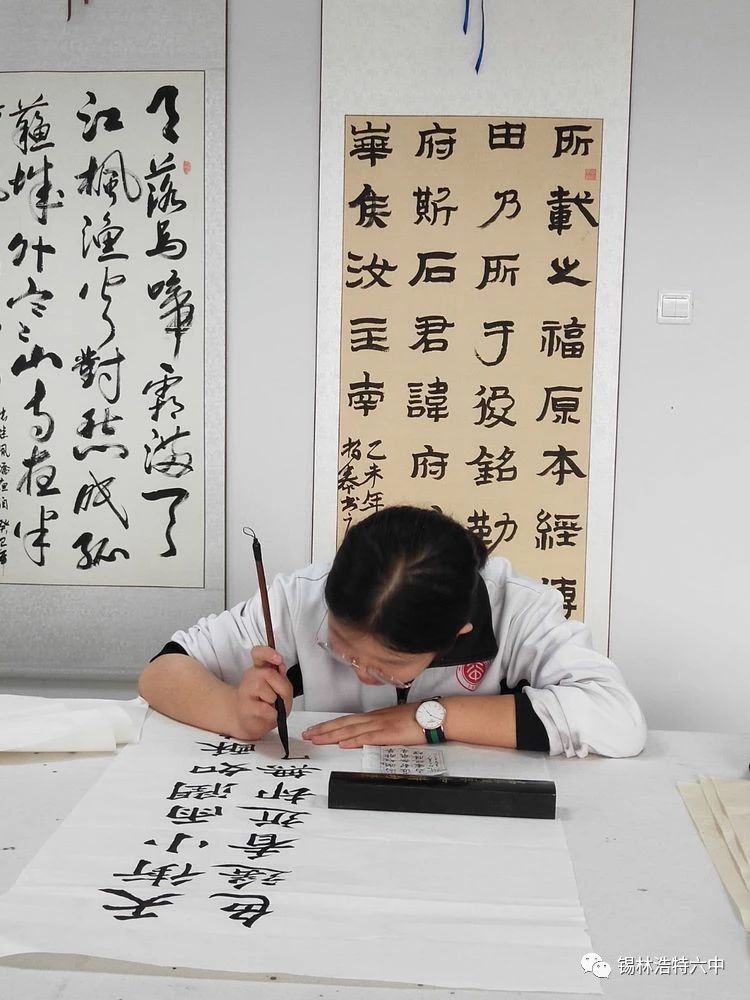 月落烏啼霜滿天
江楓漁火對愁眠姑
蘇城外寒山寺夜半
所載之福原本經傳
由乃所于役銘勒
府斯石君諱府
華侯汝主南
乙未年
天街小雨潤如酥
色遥看近却無
锡林浩特六中